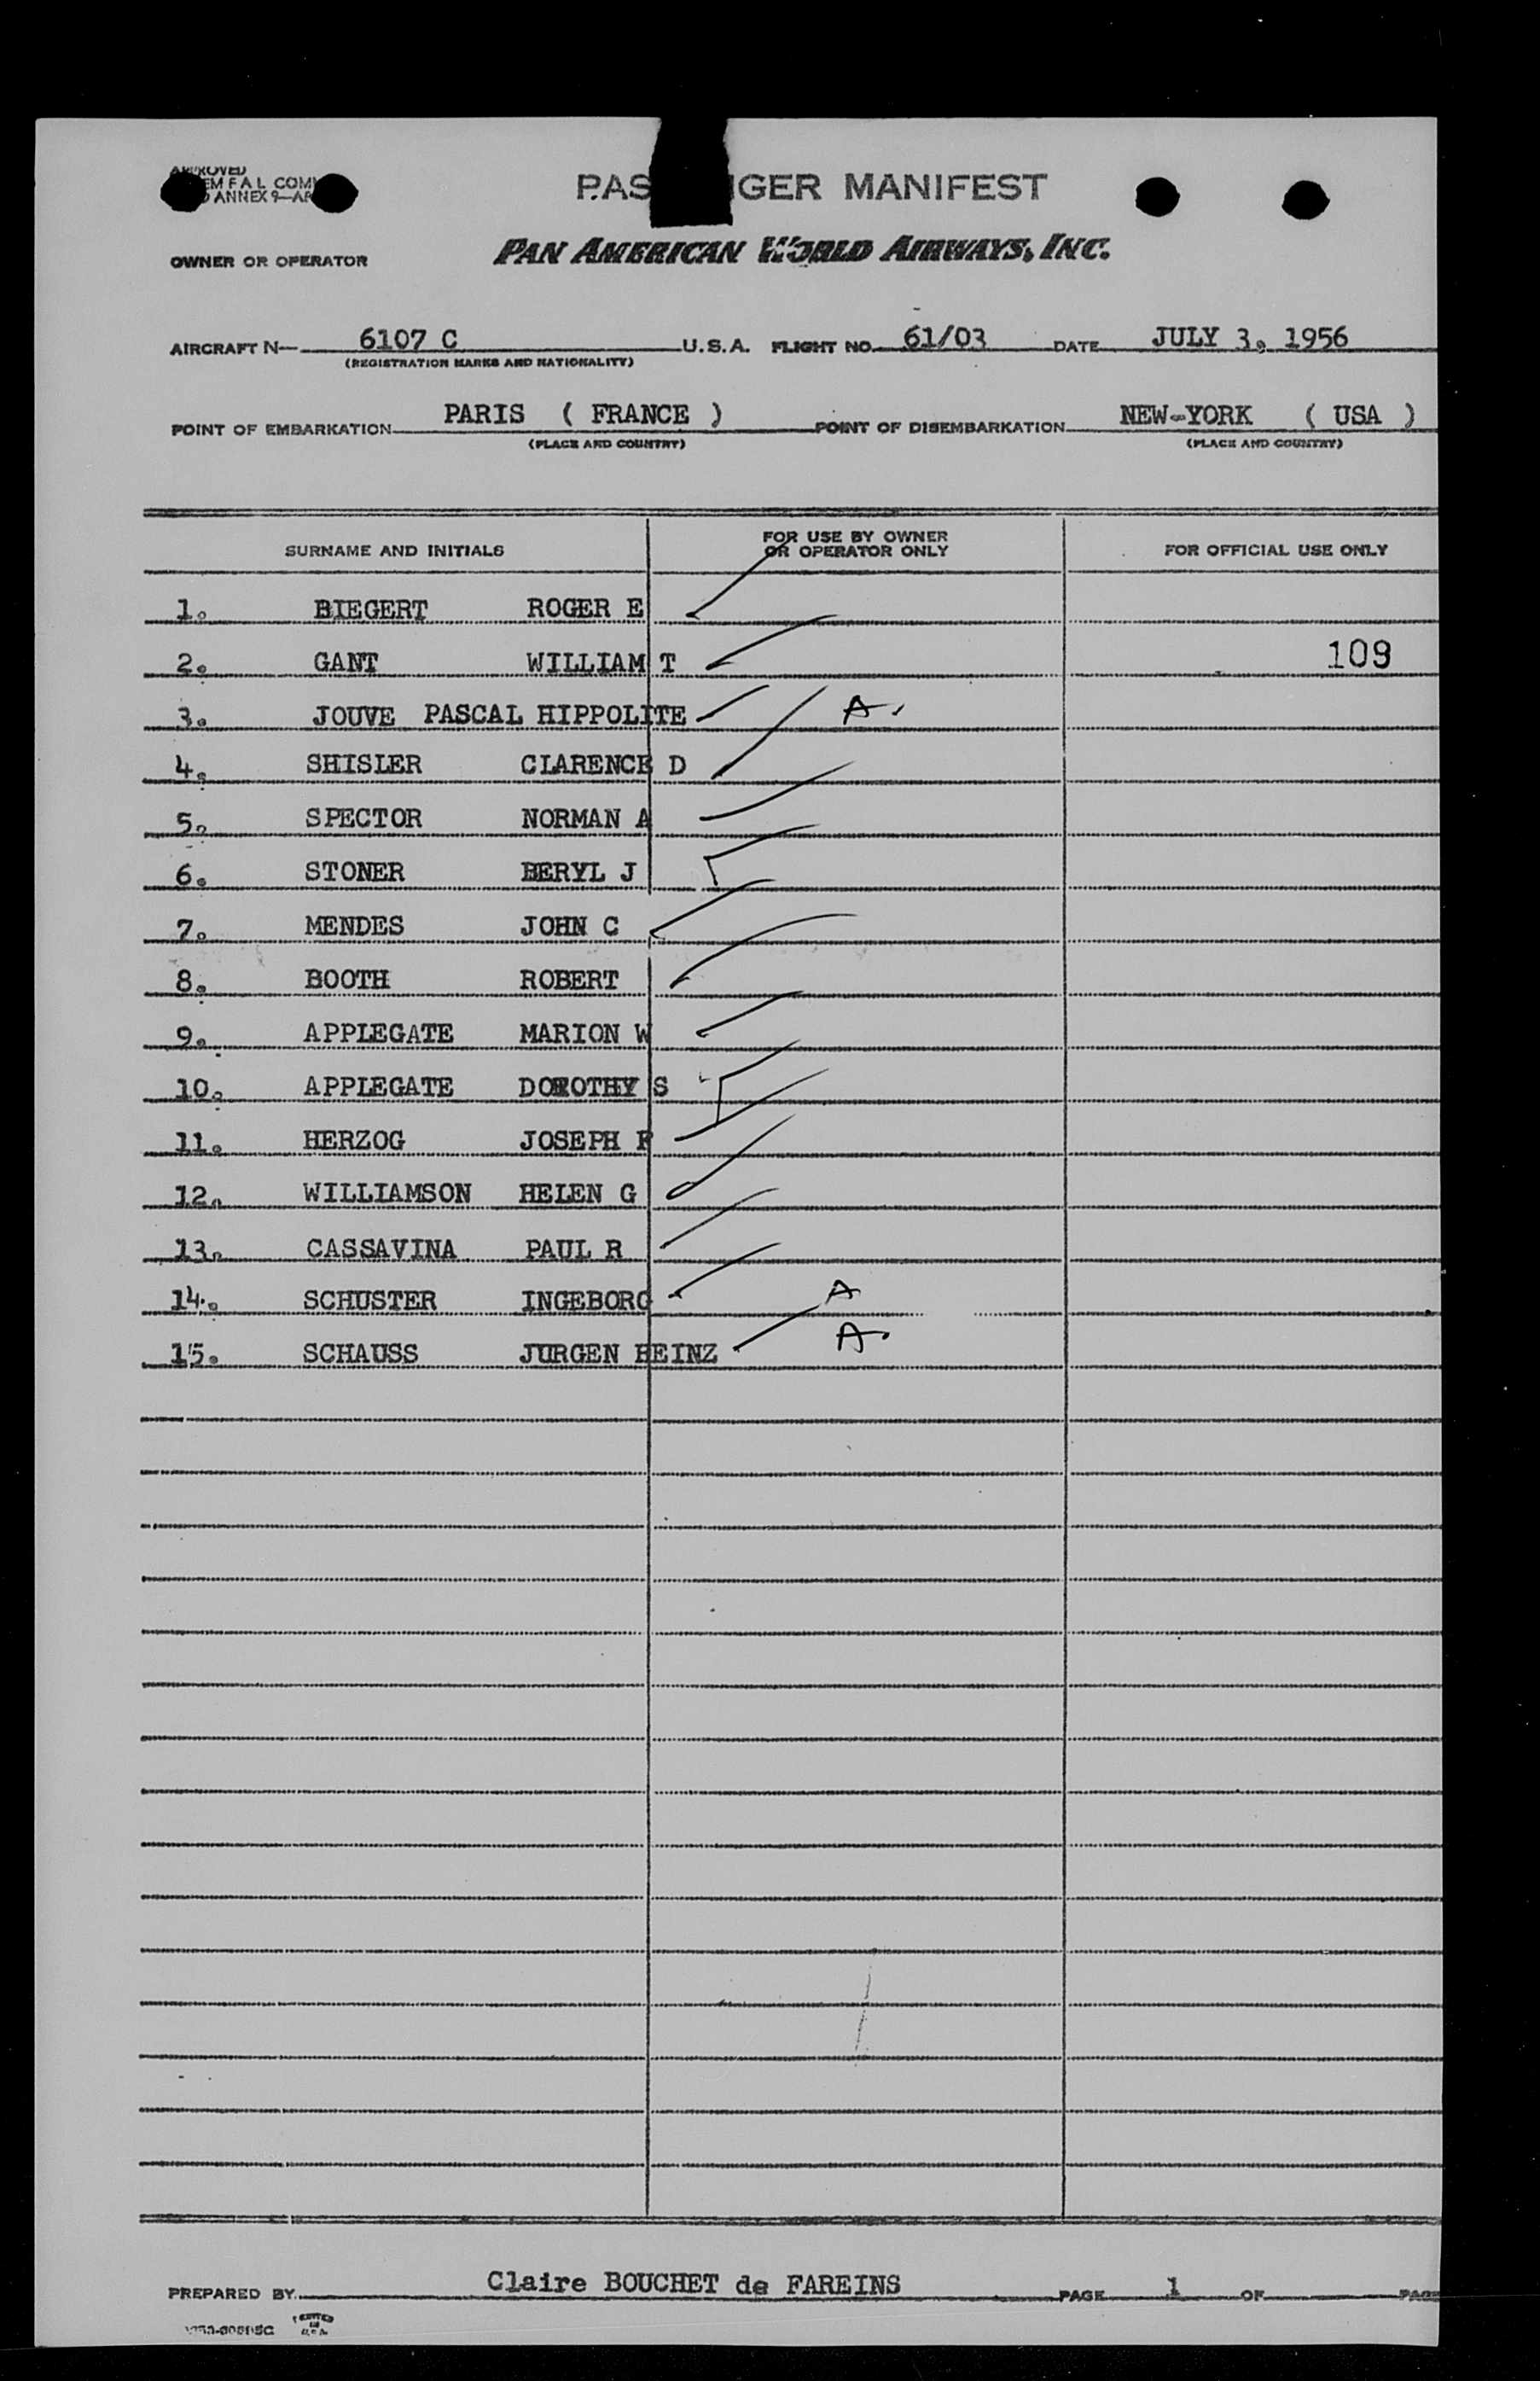 APPROVED
EM F A L COM
ANNEX 9—AP
PAS GER MANIFEST
OWNER OR OPERATOR PAN AMERICAN WORLD AIRWAYS, INC.
AIRCRAFT N— 6107 C U.S.A. FLIGHT NO. 61/03 DATE JULY 3. 1956
(REGISTRATION MARKS AND NATIONALITY)
POINT OF EMBARKATION PARIS ( FRANCE ) POINT OF DISEMBARKATION NEW-YORK ( USA )
(PLACE AND COUNTRY) (PLACE AND COUNTRY)
SURNAME AND INITIALS FOR USE BY OWNER OR OPERATOR ONLY FOR OFFICIAL USE ONLY
1. BIEGERT ROGER E
2. GANT WILLIAM T 109
3. JOUVE PASCAL HIPPOLITE A.
4. SHISLER CLARENCE D
5. SPECTOR NORMAN A
6. STONER BERYL J
7. MENDES JOHN C
8. BOOTH ROBERT
9. APPLEGATE MARION W
10. APPLEGATE DOROTHY S
11. HERZOG JOSEPH F
12. WILLIAMSON HELEN G
13. CASSAVINA PAUL R
14. SCHUSTER INGEBORG A
15. SCHAUSS JURGEN HEINZ A.
PREPARED BY Claire BOUCHET de FAREINS PAGE 1 OF PAG
PRINTED IN U.S.A.